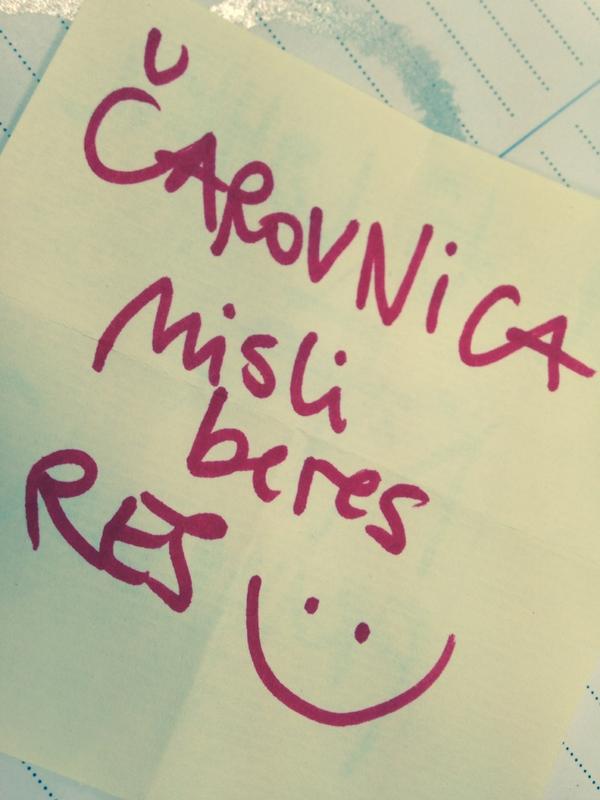 ČAROVNiCA
Misli
beres
RES